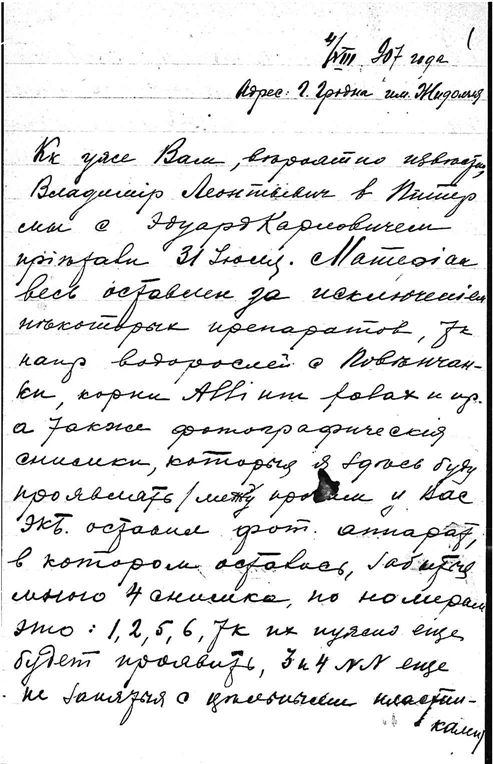 4/VIII 907 года
Адрес: г. Гродна им. Жидомля
Кк уже Вам, вѣроятно извѣстно,
Владимiр Леонтьевич в Питер
мы с Эдуард Карловичем
прiѣхали 31 Iюля. Матерiал
весь оставлен за исключенiем
нѣкоторых препаратов, тк
напр водорослей с Повѣнчан-
ки, корни Allium и пр.
а также фотографическiя
снимки, которыя я здѣсь буду
проявлять / между прочим у Вас
Эк. оставил фот. аппарат,
в котором остались, занятыя
мною 4 снимка, по номерам
это: 1, 2, 5, 6, тк их нужно еще
будет проявить, 3 и 4 NN еще
не заняты с цѣльными пластин-
ками